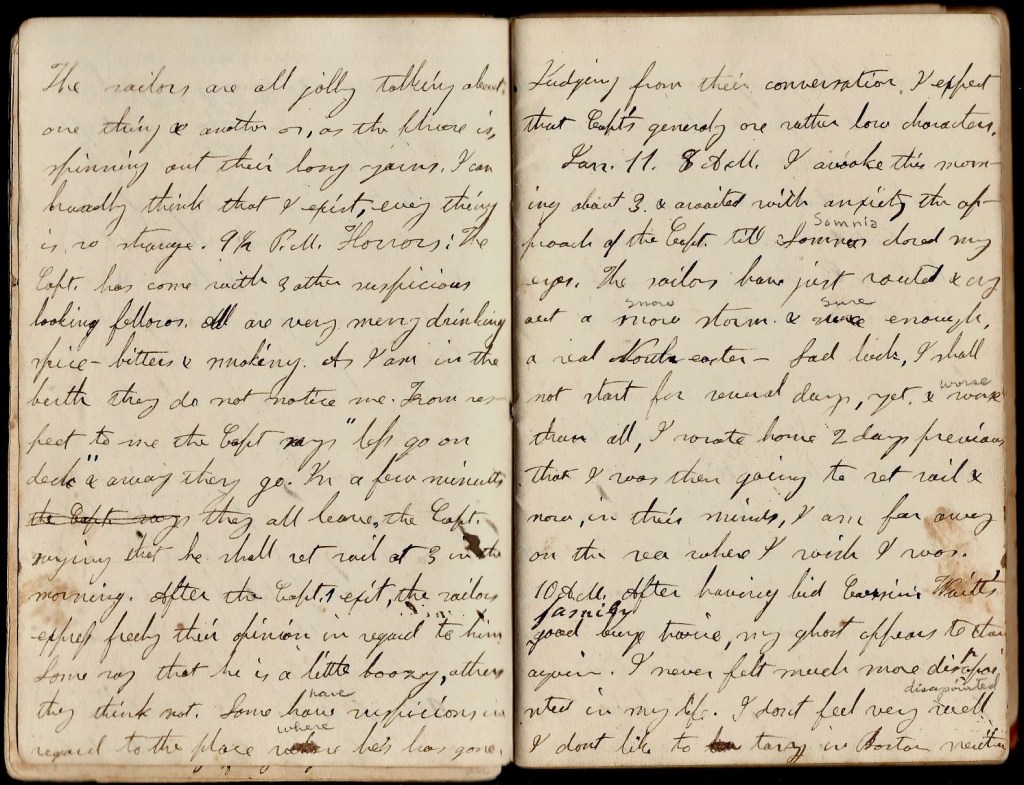 The sailors are all jolly talking about
one thing & another or, as the phrase is,
spinning out their long yarns. I can
hardly think that I exist, every thing
is so strange. 9½ P.M. Horrors! The
Capt. has come with 3 other suspicious
looking fellows. All are very merry drinking
spice-bitters & smoking. As I am in the
berth they do not notice me. From res-
pect to me the Capt says "let's go on
deck" & away they go. In a few minutes
the Capt. says they all leave, the Capt.
saying that he shall set sail at 3 in the
morning. After the Capt.'s exit, the sailors
express freely their opinion in regard to him
Some say that he is a little boozy, others
they think not. Some have suspicions in
have
regard to the place where he's has gone.
where
Judging from their conversation, I expect
that Capt's generaly are rather low characters.
Jan. 11. 8 A.M. I awoke this morn-
ing about 3. & awaited with anxiety the ap-
proach of the Capt. till Somnus closed my
Somnia
eyes. The sailors have just routed & cry
out a snow storm. & sure enough,
snow sure
a real North-easter- Sad luck, I shall
not start for several days, yet, & worse
worse
than all, I wrote home 2 days previous
that I was then going to set sail &
now, in their minds, I am far away
on the sea where I wish I was.
10 A.M. After having bid Cousin Waitt's
family
good bye twice, my ghost appears to them
again. I never felt much more disapoi-
nted in my life. I dont feel very well
disapointed
I dont like to tary in Boston neither